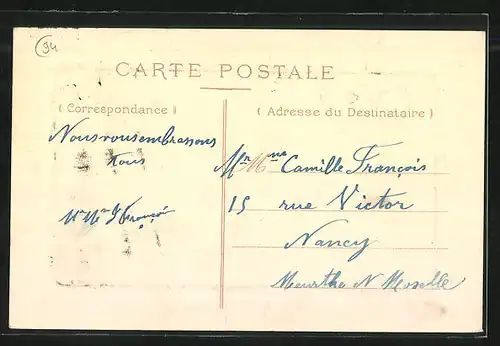 94
CARTE POSTALE
( Correspondance )
( Adresse du Destinataire )
Nous vous embrassons
tous
Mr Mme François
Mr Mme Camille François
15 rue Victor
Nancy
Meurthe N Moselle